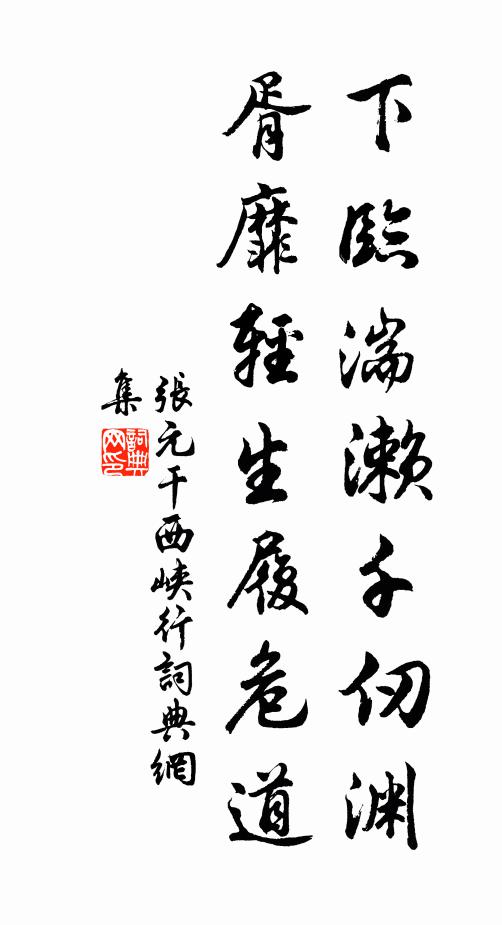 下臨湍瀨千仞淵
胥靡輕生履危道
張元干西峽行詞典網
集
詞典
网印